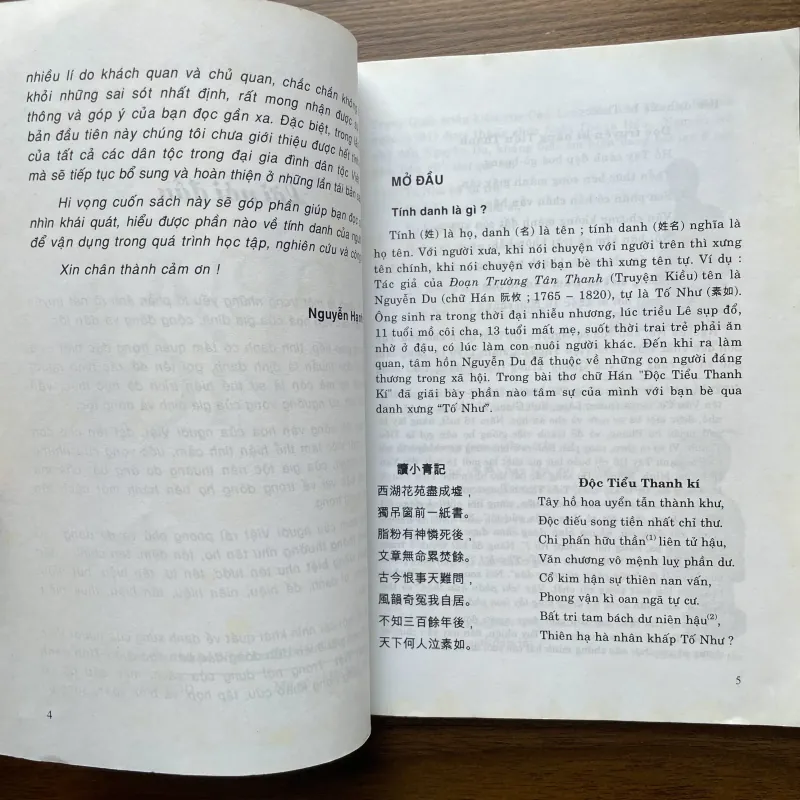 nhiều lí do khách quan và chủ quan, chắc chắn không
khỏi những sai sót nhất định, rất mong nhận được
thông và góp ý của bạn đọc gần xa. Đặc biệt, trong
bản đầu tiên này chúng tôi chưa giới thiệu được hết
của tất cả các dân tộc trong đại gia đình dân tộc Việt
mà sẽ tiếp tục bổ sung và hoàn thiện ở những lần tái bản
Hi vọng cuốn sách này sẽ góp phần giúp bạn đọc
nhìn khái quát, hiểu được phần nào về tính danh của
để vận dụng trong quá trình học tập, nghiên cứu và
Xin chân thành cảm ơn !
Nguyễn
4
MỞ ĐẦU
Tính danh là gì ?
Tính (姓) là họ, danh (名) là tên ; tính danh (姓名) nghĩa là
họ tên. Với người xưa, khi nói chuyện với người trên thì xưng
tên chính, khi nói chuyện với bạn bè thì xưng tên tự. Ví dụ :
Tác giả của Đoạn Trường Tân Thanh (Truyện Kiều) tên là
Nguyễn Du (chữ Hán 阮攸 ; 1765 – 1820), tự là Tố Như (素如).
Ông sinh ra trong thời đại nhiễu nhương, lúc triều Lê sụp đổ,
11 tuổi mồ côi cha, 13 tuổi mất mẹ, suốt thời trai trẻ phải ăn
nhờ ở đậu, có lúc làm con nuôi người khác. Đến khi ra làm
quan, tâm hồn Nguyễn Du đã thuộc về những con người đáng
thương trong xã hội. Trong bài thơ chữ Hán "Độc Tiểu Thanh
Kí" đã giãi bày phần nào tâm sự của mình với bạn bè qua
danh xưng “Tố Như”.
讀小青記
西湖花苑盡成墟，
獨吊窗前一紙書。
脂粉有神憐死後，
文章無命累焚餘。
古今恨事天難問，
風韻奇冤我自居。
不知三百餘年後，
天下何人泣素如。
Độc Tiểu Thanh kí
Tây hồ hoa uyển tẫn thành khư,
Độc điếu song tiền nhất chỉ thư.
Chi phấn hữu thần(1) liên tử hậu,
Văn chương vô mệnh luỵ phần dư.
Cổ kim hận sự thiên nan vấn,
Phong vận kì oan ngã tự cư.
Bất tri tam bách dư niên hậu(2),
Thiên hạ hà nhân khấp Tố Như ?
5